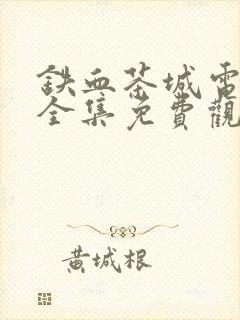 鉄血茶城電
全集免費觀
黃城根